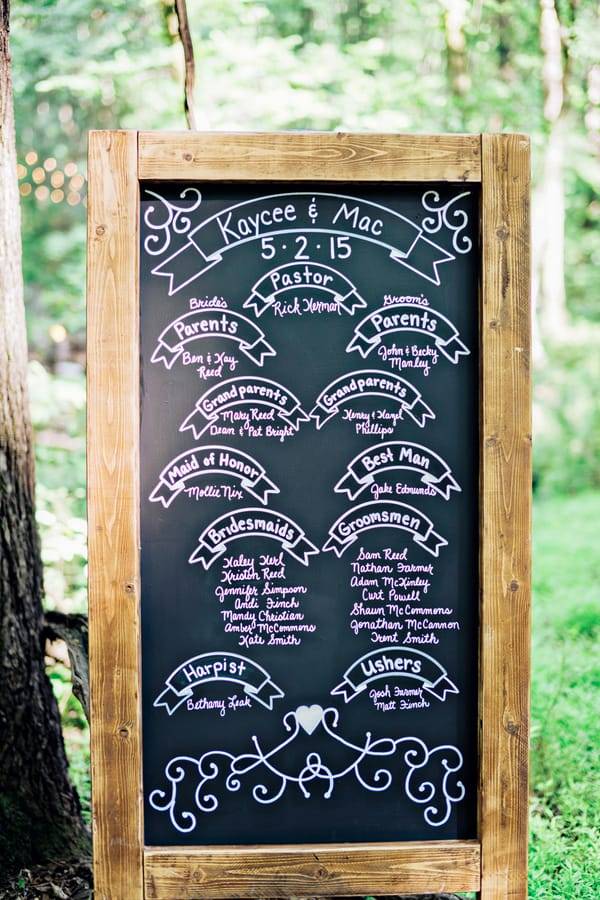 Kaycee & Mac
5·2·15
Pastor
Rick Herman
Bride's
Parents
Ben & Kay
Reed
Groom's
Parents
John & Becky
Manley
Grandparents
Mary Reed
Dean & Pat Bright
Grandparents
Henry & Hazel
Phillips
Maid of Honor
Mollie Nix
Best Man
Jake Edmunds
Bridesmaids
Haley Herl
Kristen Reed
Jennifer Simpson
Andi Finch
Mandy Christian
Amber McCommons
Kate Smith
Groomsmen
Sam Reed
Nathan Farmer
Adam McKinley
Curt Powell
Shaun McCommons
Jonathan McCannon
Trent Smith
Harpist
Bethany Leak
Ushers
Josh Farmer
Matt Finch